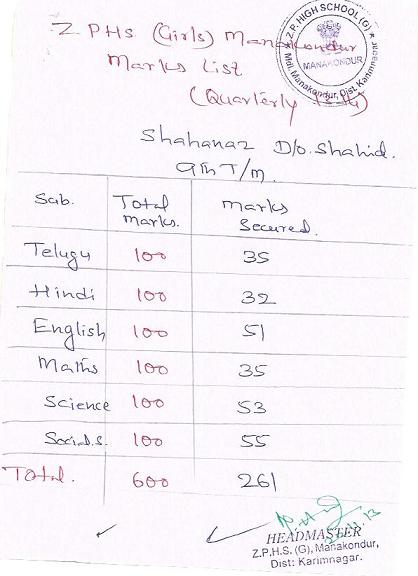 Z.P. HIGH SCHOOL (G)
MANAKONDUR
Mdl. Manakondur, Dist. Karimnagar
ZPHS (Girls) Manakondur
Marks List
(Quarterly
Shahanaz D/o. Shahid.
9th T/m.
Sub. Total Marks. Marks Secured.
Telugu 100 35
Hindi 100 32
English 100 51
Maths 100 35
Science 100 53
Soci.S. 100 55
Total. 600 261
HEADMASTER
Z.P.H.S. (G), Manakondur,
Dist: Karimnagar.